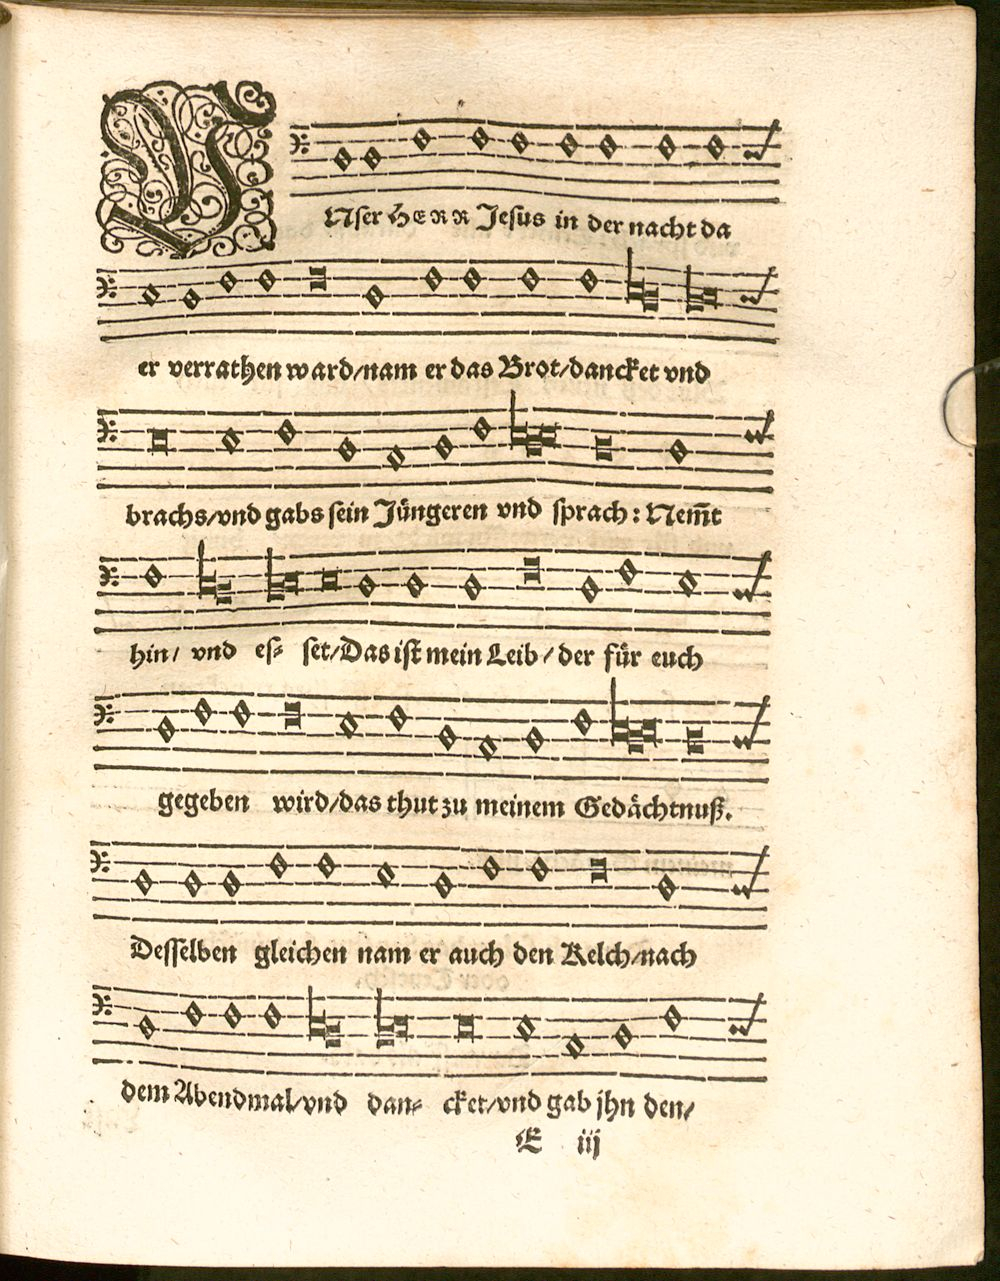 VNser HERR Jesus in der nacht da
er verrathen ward/nam er das Brot/dancket vnd
brachs/vnd gabs sein Jüngeren vnd sprach: Nem̃t
hin/ vnd es⸗ set/Das ist mein Leib/der für euch
gegeben wird/das thut zu meinem Gedächtnuß.
Desselben gleichen nam er auch den Kelch/nach
dem Abendmal/vnd dan⸗ cket/vnd gab jhn den/
E iij